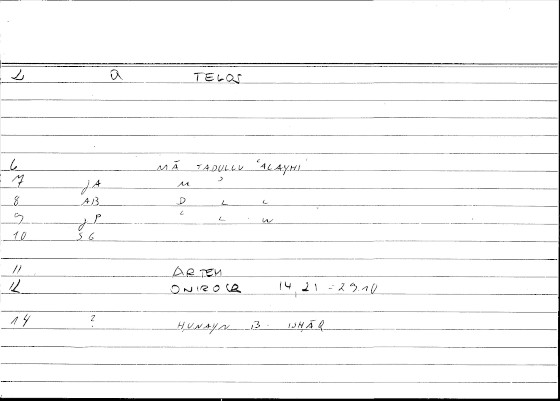 2 a TELOS
6 MĀ TADULLU ʿALAYHI
7 JA M ʾ
8 AB D L L
9 JP ʿ L W
10 SG
11 ARTEM
12 ONIROCR 14,21 = 29.10
14 ? HUNAYN B. ISHĀQ